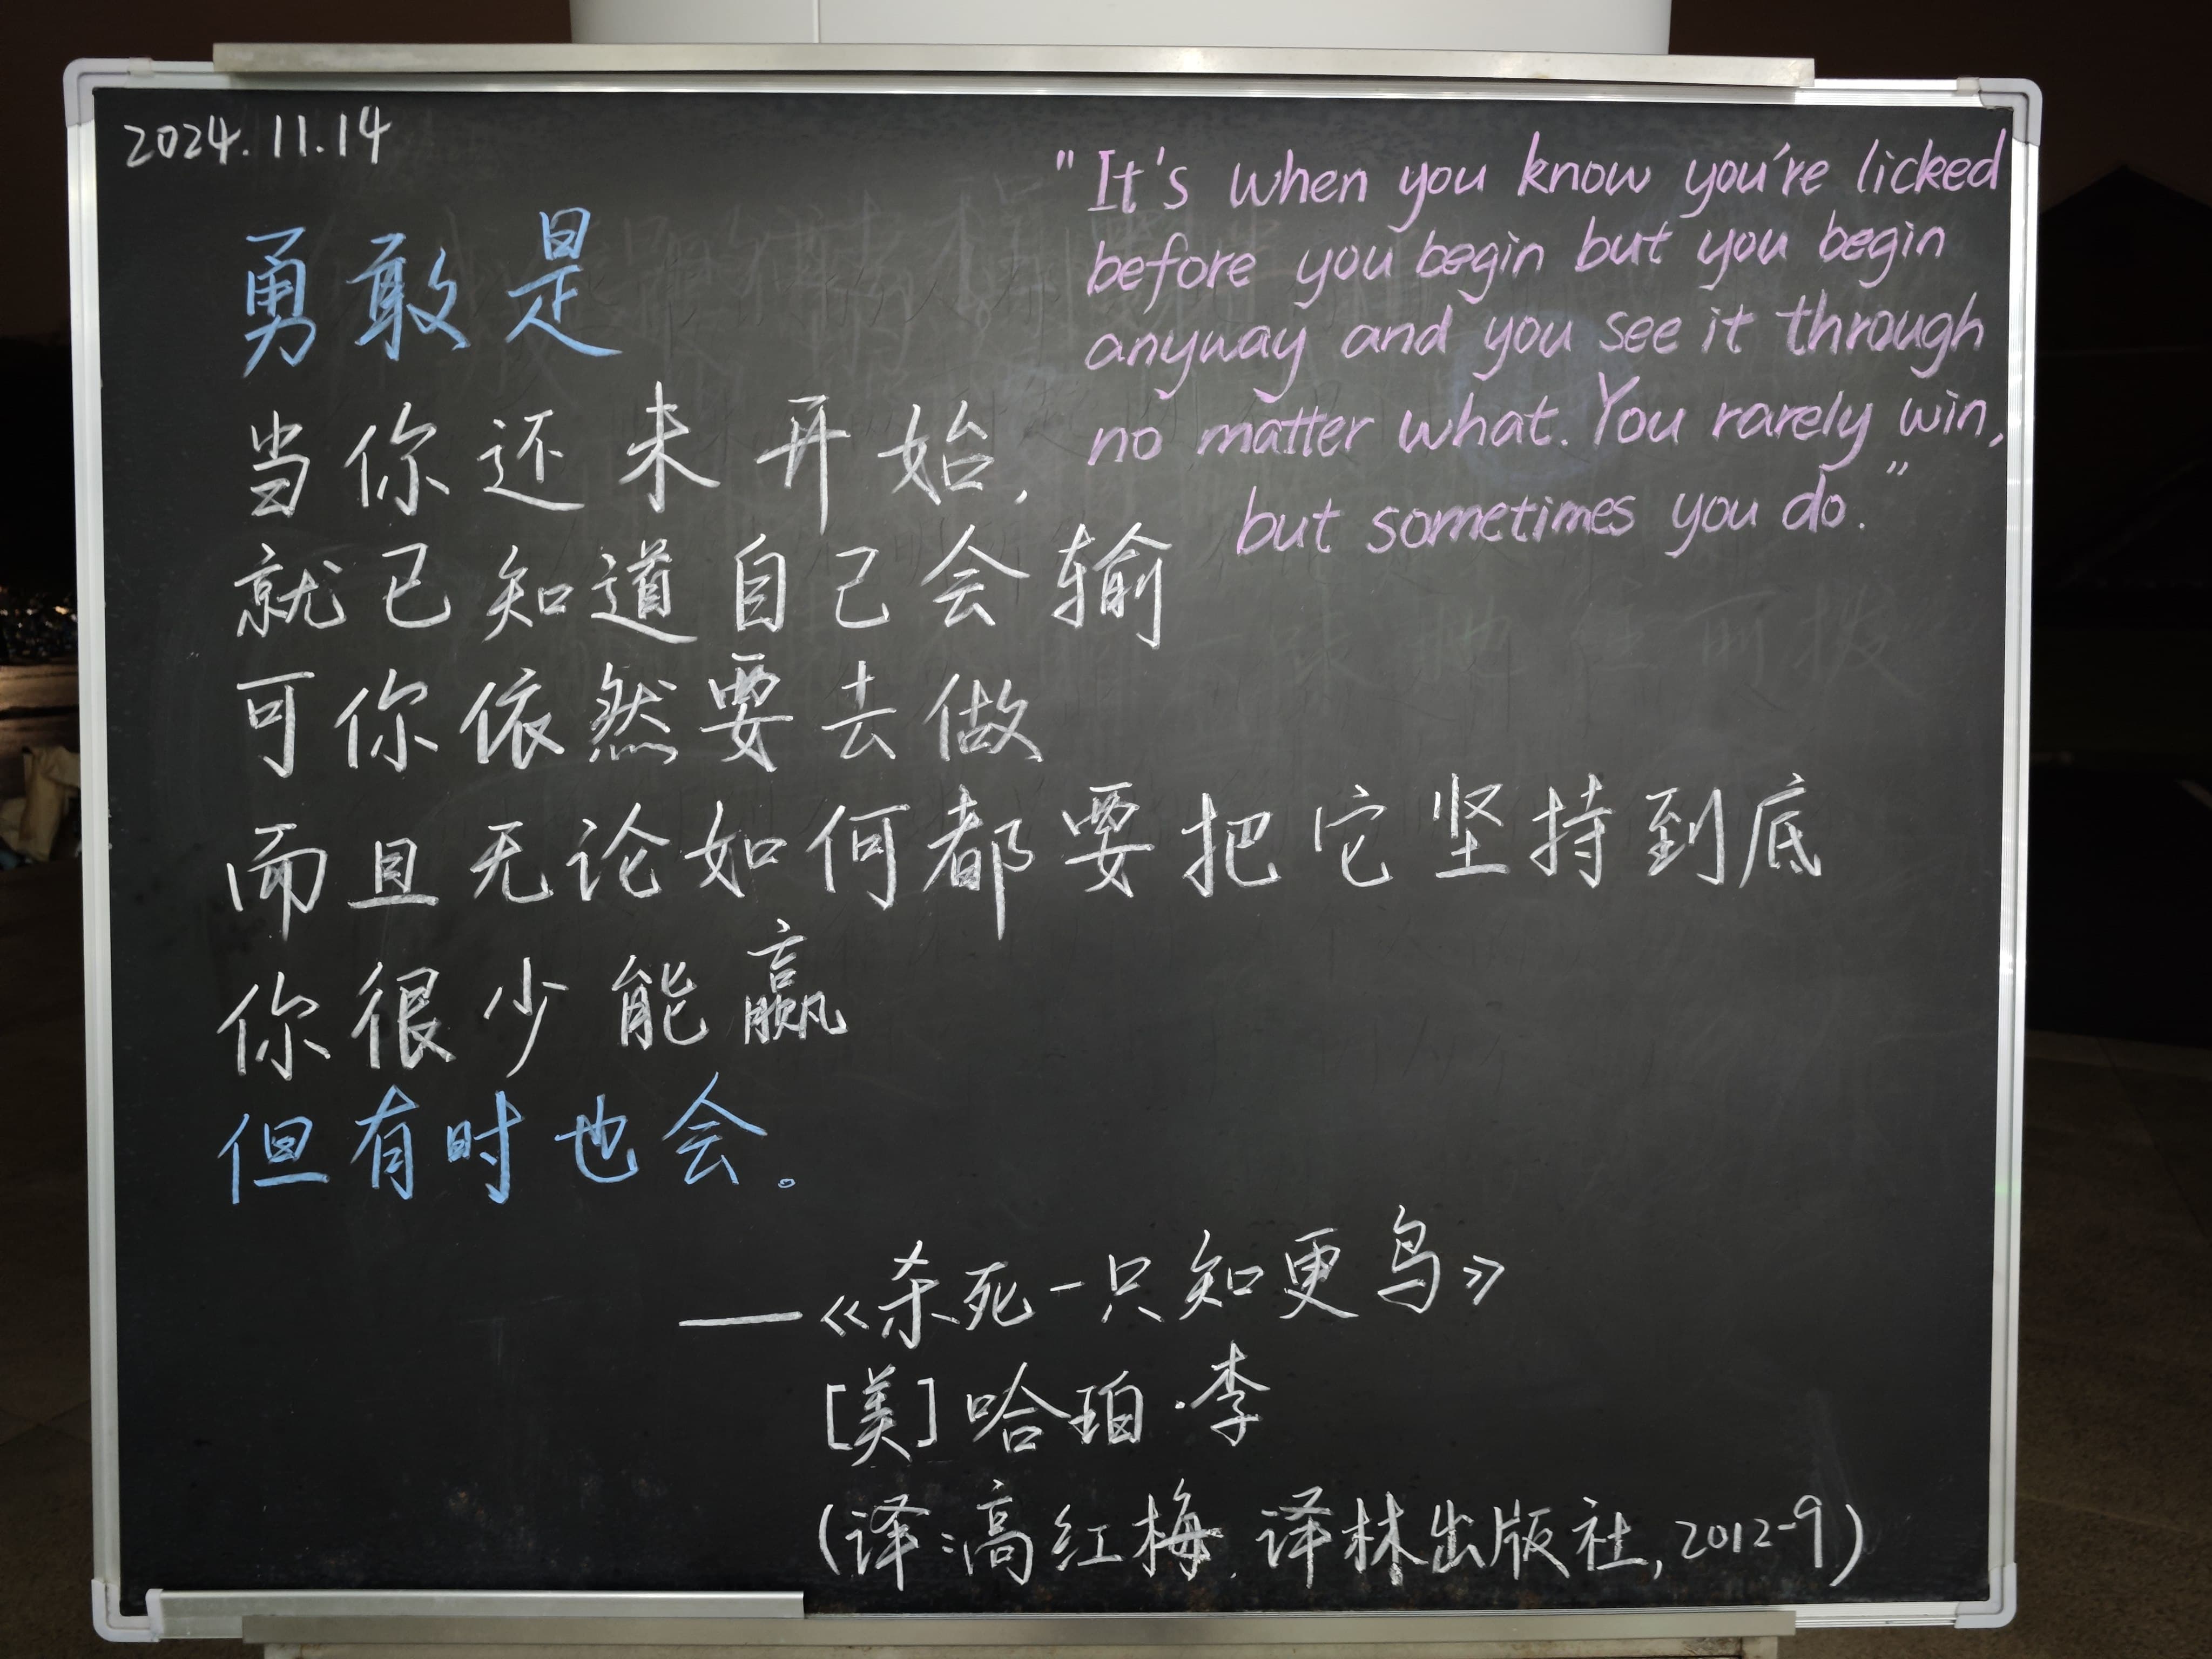 2024.11.14
"It's when you know you're licked
before you begin but you begin
anyway and you see it through
no matter what. You rarely win,
but sometimes you do."
勇敢是
当你还未开始,
就已知道自己会输
可你依然要去做
而且无论如何都要把它坚持到底
你很少能赢
但有时也会。
——《杀死一只知更鸟》
[美]哈珀·李
(译:高红梅,译林出版社,2012-9)